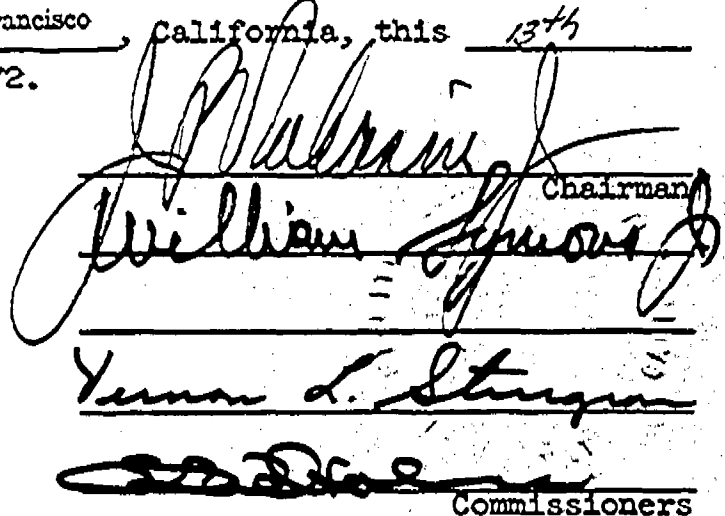 rancisco, California, this 13th
72.
Chairman
William Symons Jr
Vernon L. Sturgeon
Commissioners